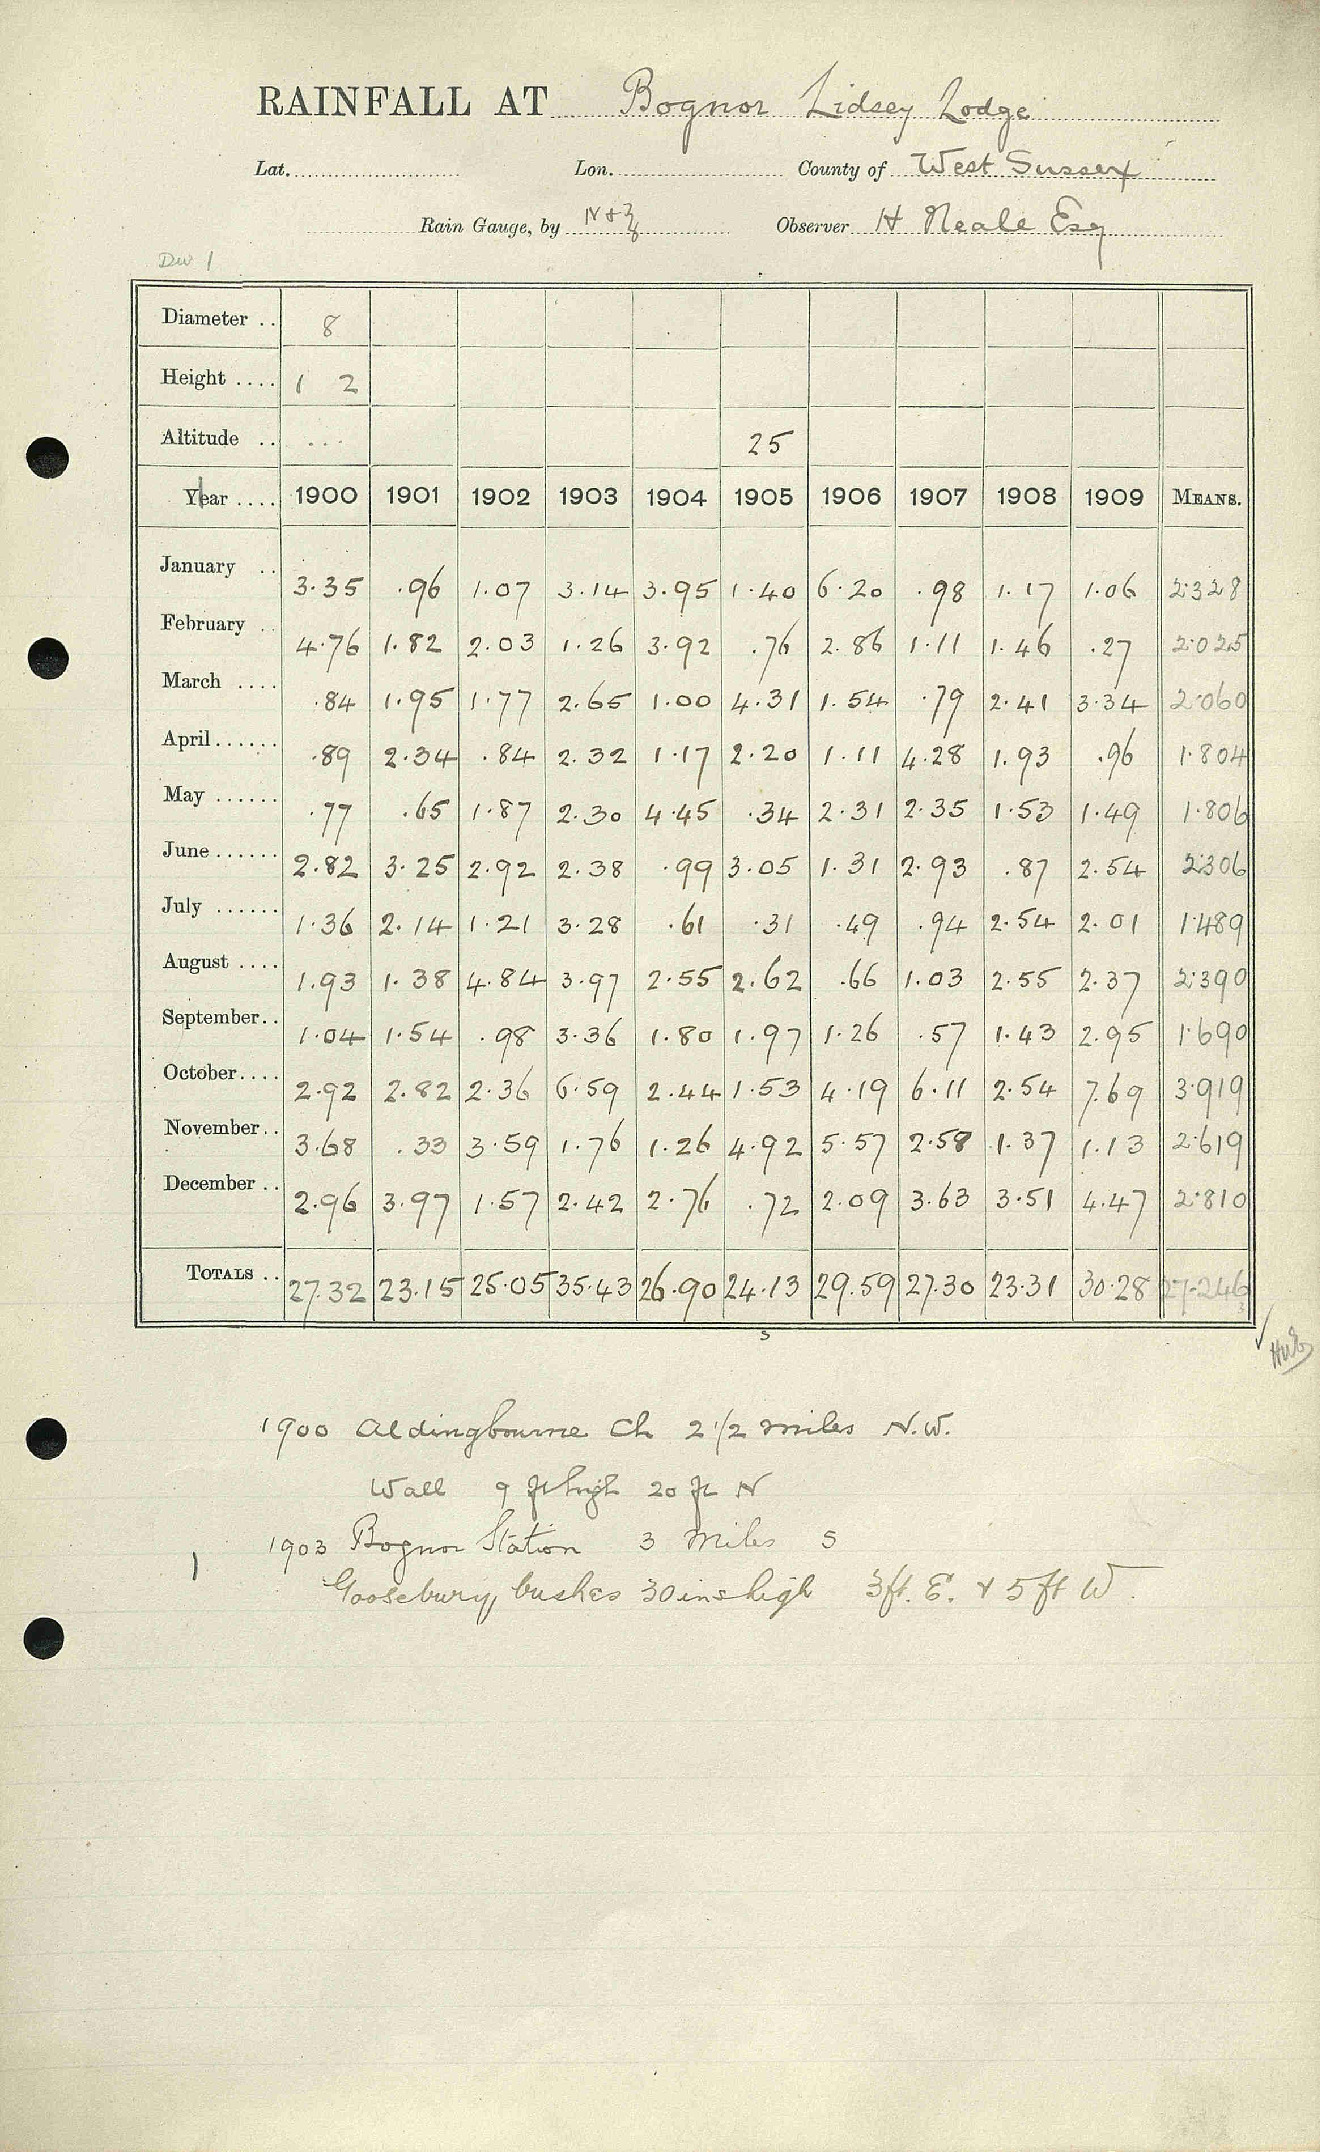 RAINFALL AT Bognor Lidsey Lodge
Lat. Lon. County of West Sussex
Rain Gauge, by N & Z Observer H Neale Esq
Diameter .. 8
Height .... 1 2
Altitude .. ... 25
Year .... 1900 1901 1902 1903 1904 1905 1906 1907 1908 1909 MEANS.
January .. 3.35 .96 1.07 3.14 3.95 1.40 6.20 .98 1.17 1.06 2.328
February .. 4.76 1.82 2.03 1.26 3.92 .76 2.86 1.11 1.46 .27 2.025
March .... .84 1.95 1.77 2.65 1.00 4.31 1.54 .79 2.41 3.34 2.060
April...... .89 2.34 .84 2.32 1.17 2.20 1.11 4.28 1.93 .96 1.804
May ...... .77 .65 1.87 2.30 4.45 .34 2.31 2.35 1.53 1.49 1.806
June...... 2.82 3.25 2.92 2.38 .99 3.05 1.31 2.93 .87 2.54 2.306
July ...... 1.36 2.14 1.21 3.28 .61 .31 .49 .94 2.54 2.01 1.489
August .... 1.93 1.38 4.84 3.97 2.55 2.62 .66 1.03 2.55 2.37 2.390
September.. 1.04 1.54 .98 3.36 1.80 1.97 1.26 .57 1.43 2.95 1.690
October.... 2.92 2.82 2.36 6.59 2.44 1.53 4.19 6.11 2.54 7.69 3.919
November.. 3.68 .33 3.59 1.76 1.26 4.92 5.57 2.58 1.37 1.13 2.619
December .. 2.96 3.97 1.57 2.42 2.76 .72 2.09 3.63 3.51 4.47 2.810
TOTALS .. 27.32 23.15 25.05 35.43 26.90 24.13 29.59 27.30 23.31 30.28 27.246
3
1900 Aldingbourne Ch 2 1/2 miles N.W.
Wall 9 ft high 20 ft N
1903 Bognor Station 3 miles S
Goosebury bushes 30 ins high 3ft. E. & 5 ft W.